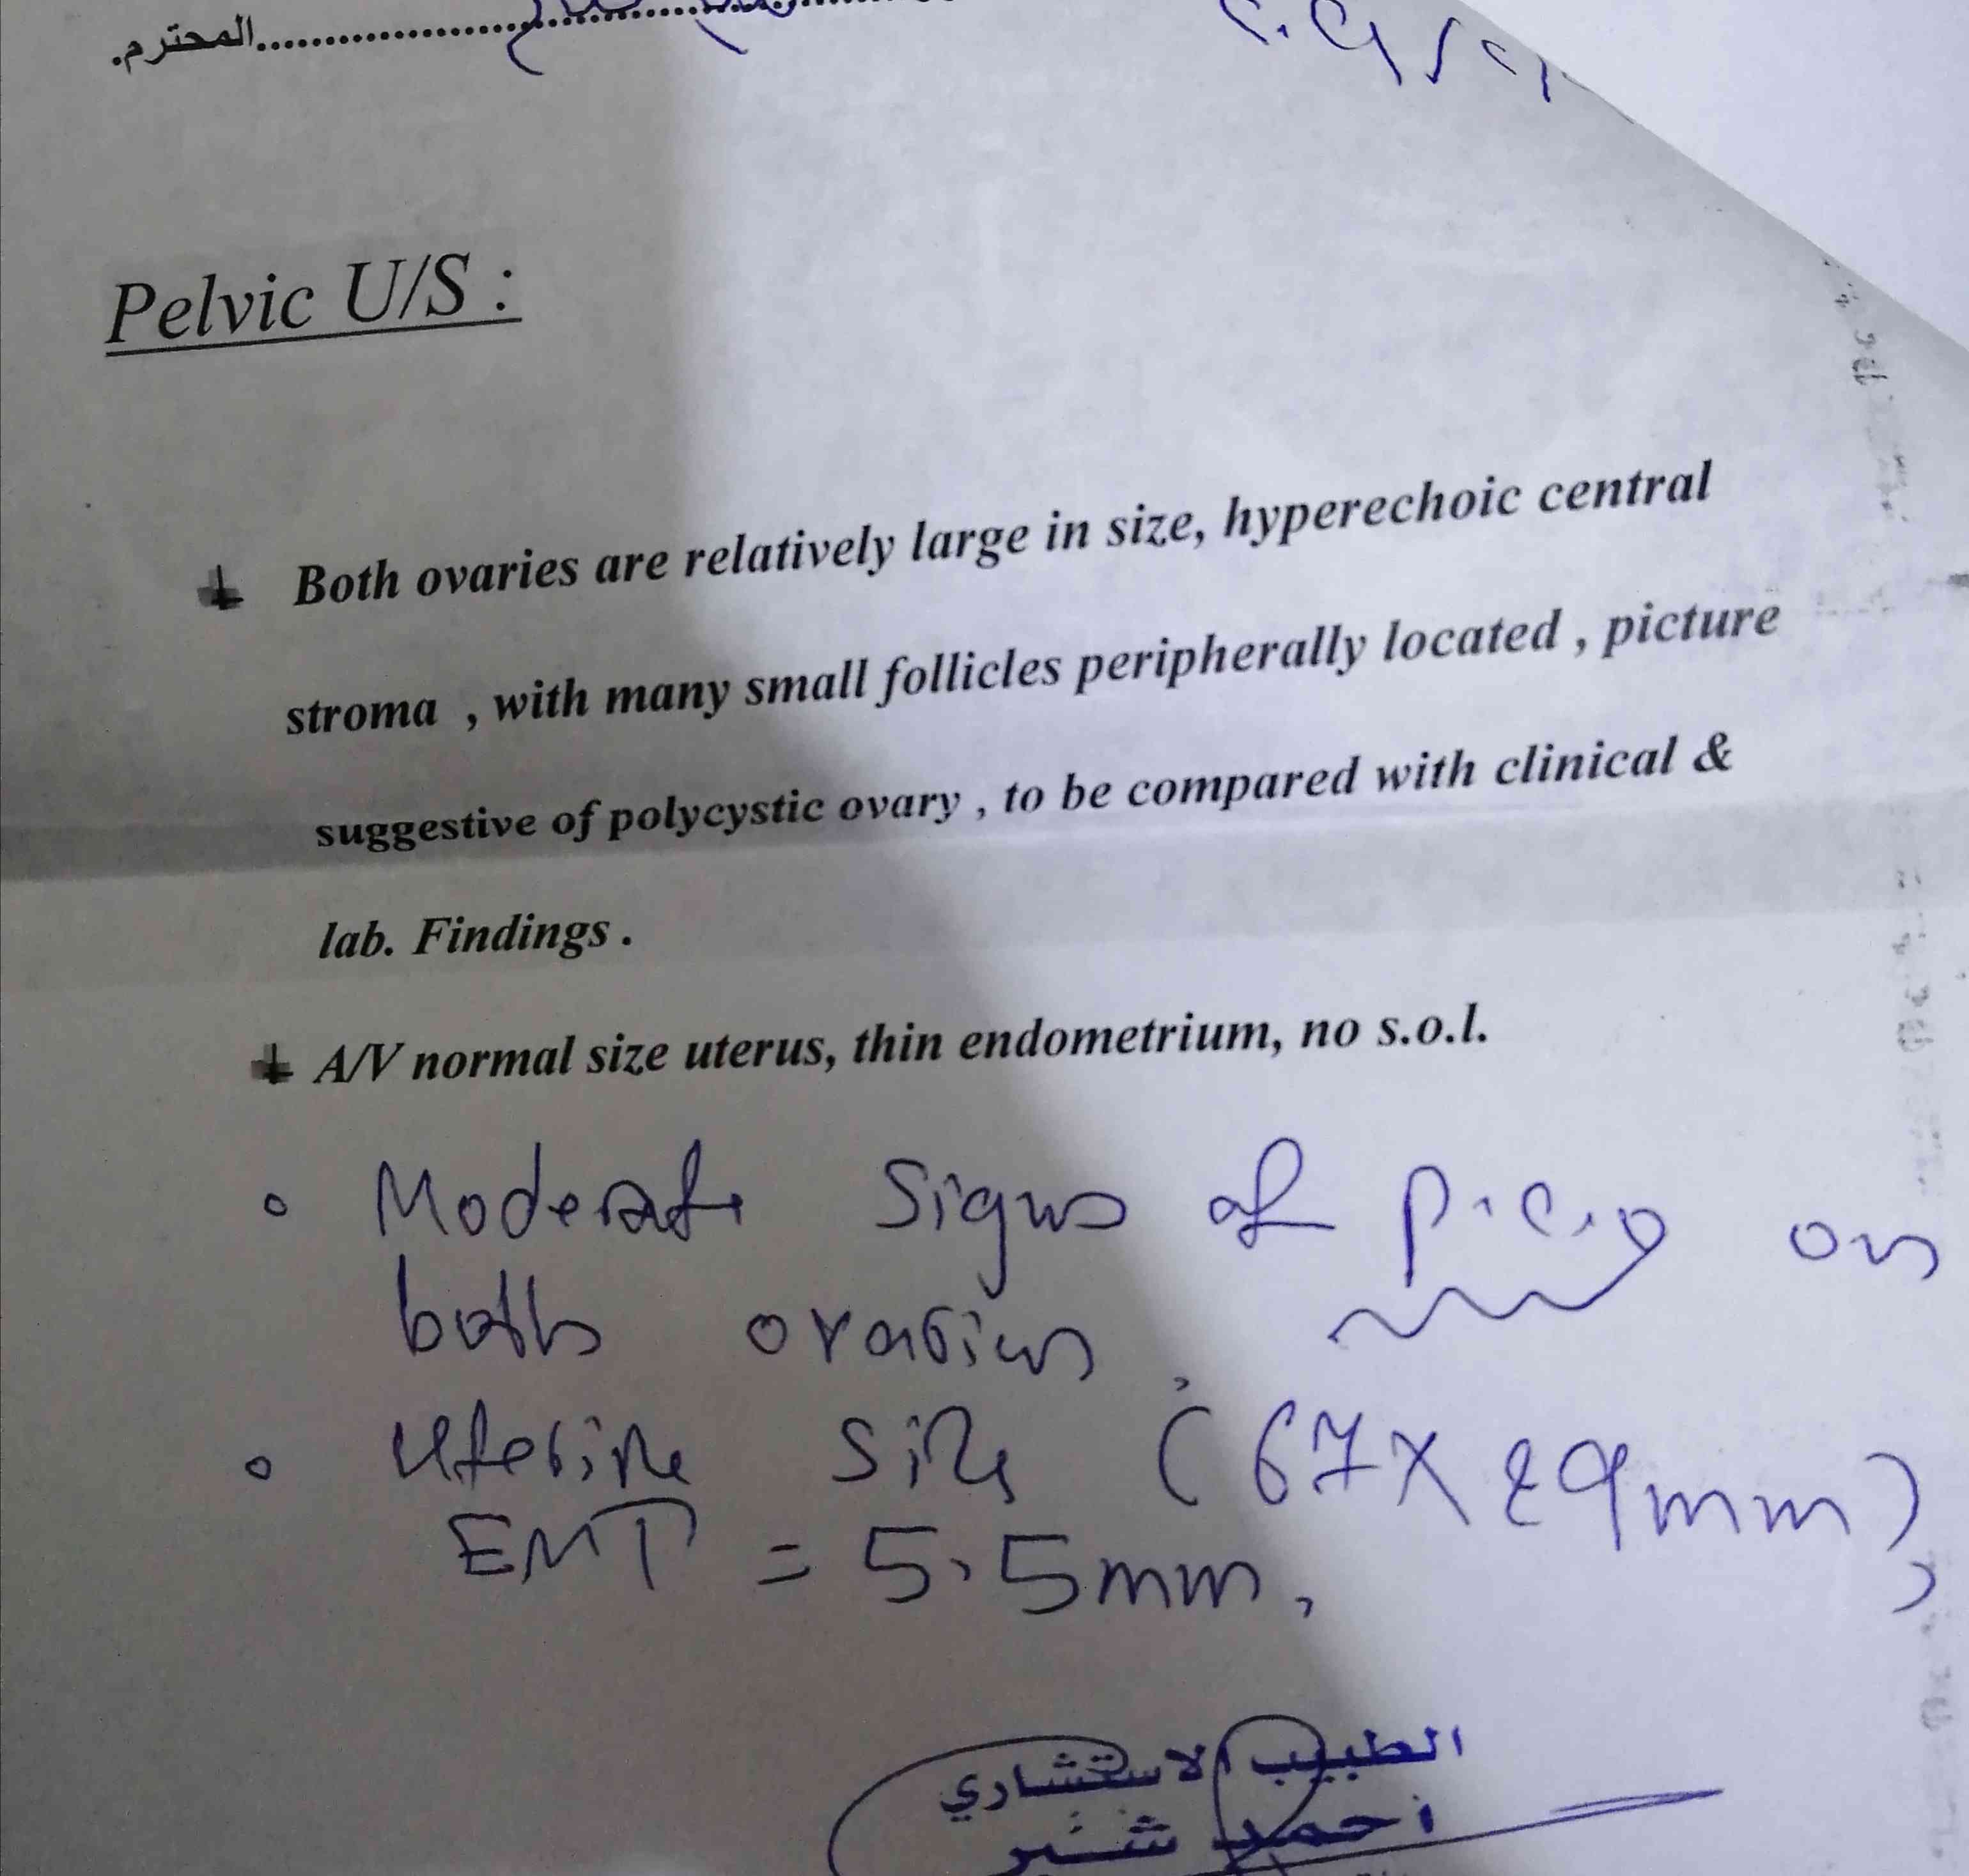 المحترم.
Pelvic U/S :
Both ovaries are relatively large in size, hyperechoic central
stroma , with many small follicles peripherally located , picture
suggestive of polycystic ovary , to be compared with clinical &
lab. Findings .
A/V normal size uterus, thin endometrium, no s.o.l.
Moderate Signs of p.c.o on
both ovaries,
Uterine size (67x29mm),
EMT = 5.5mm,
الطبيب الاستشاري
أحمد شبر